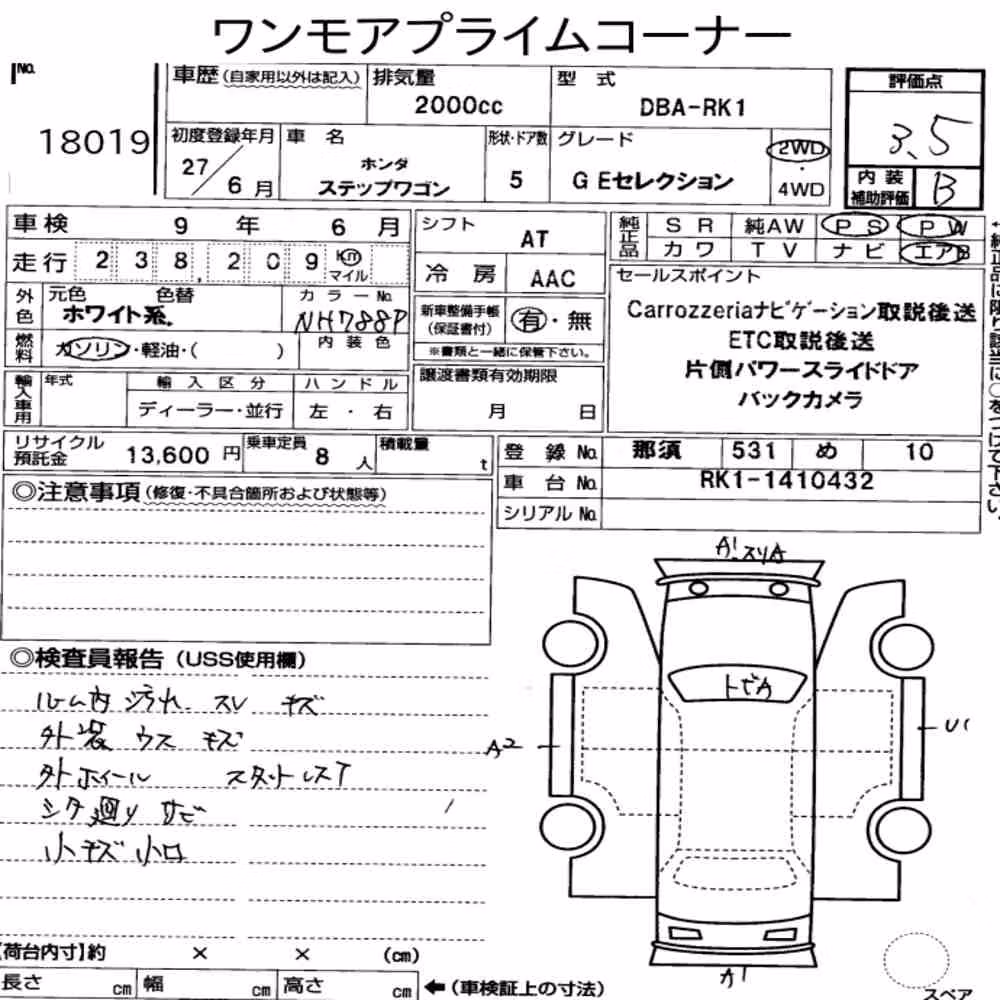 ワンモアプライムコーナー
No. 18019
車歴(自家用以外は記入)
排気量 2000cc
型式 DBA-RK1
評価点 3.5
初度登録年月 27/6月
車名 ホンダ ステップワゴン
形状・ドア数 5
グレード GEセレクション
2WD・4WD
内装補助評価 B
車検 9年 6月
シフト AT
純正品 SR 純AW PS PW
カワ TV ナビ エアB
走行 238,209 km マイル
冷房 AAC
セールスポイント
Carrozzeriaナビゲーション取説後送
ETC取説後送
片側パワースライドドア
バックカメラ
外色 元色 色替 ホワイト系.
カラーNo. NH788P
内装色
新車整備手帳(保証書付) 有・無
※書類と一緒に保管下さい。
燃料 ガソリン・軽油・( )
輸入車用 年式 輸入区分 ハンドル
ディーラー・並行 左・右
譲渡書類有効期限
月 日
リサイクル預託金 13,600円
乗車定員 8人
積載量 t
登録No. 那須 531 め 10
車台No. RK1-1410432
シリアルNo.
◎注意事項(修復・不具合箇所および状態等)
◎検査員報告(USS使用欄)
ルーム内 汚れ スレ キズ
外装 ウス キズ
外ホイール スタットレスT
シタ廻り サビ
小キズ 小凹
A1 スリA
トビA
A2
U1
A1
【荷台内寸】約 × × (cm)
長さ cm 幅 cm 高さ cm ←(車検証上の寸法)
スペア